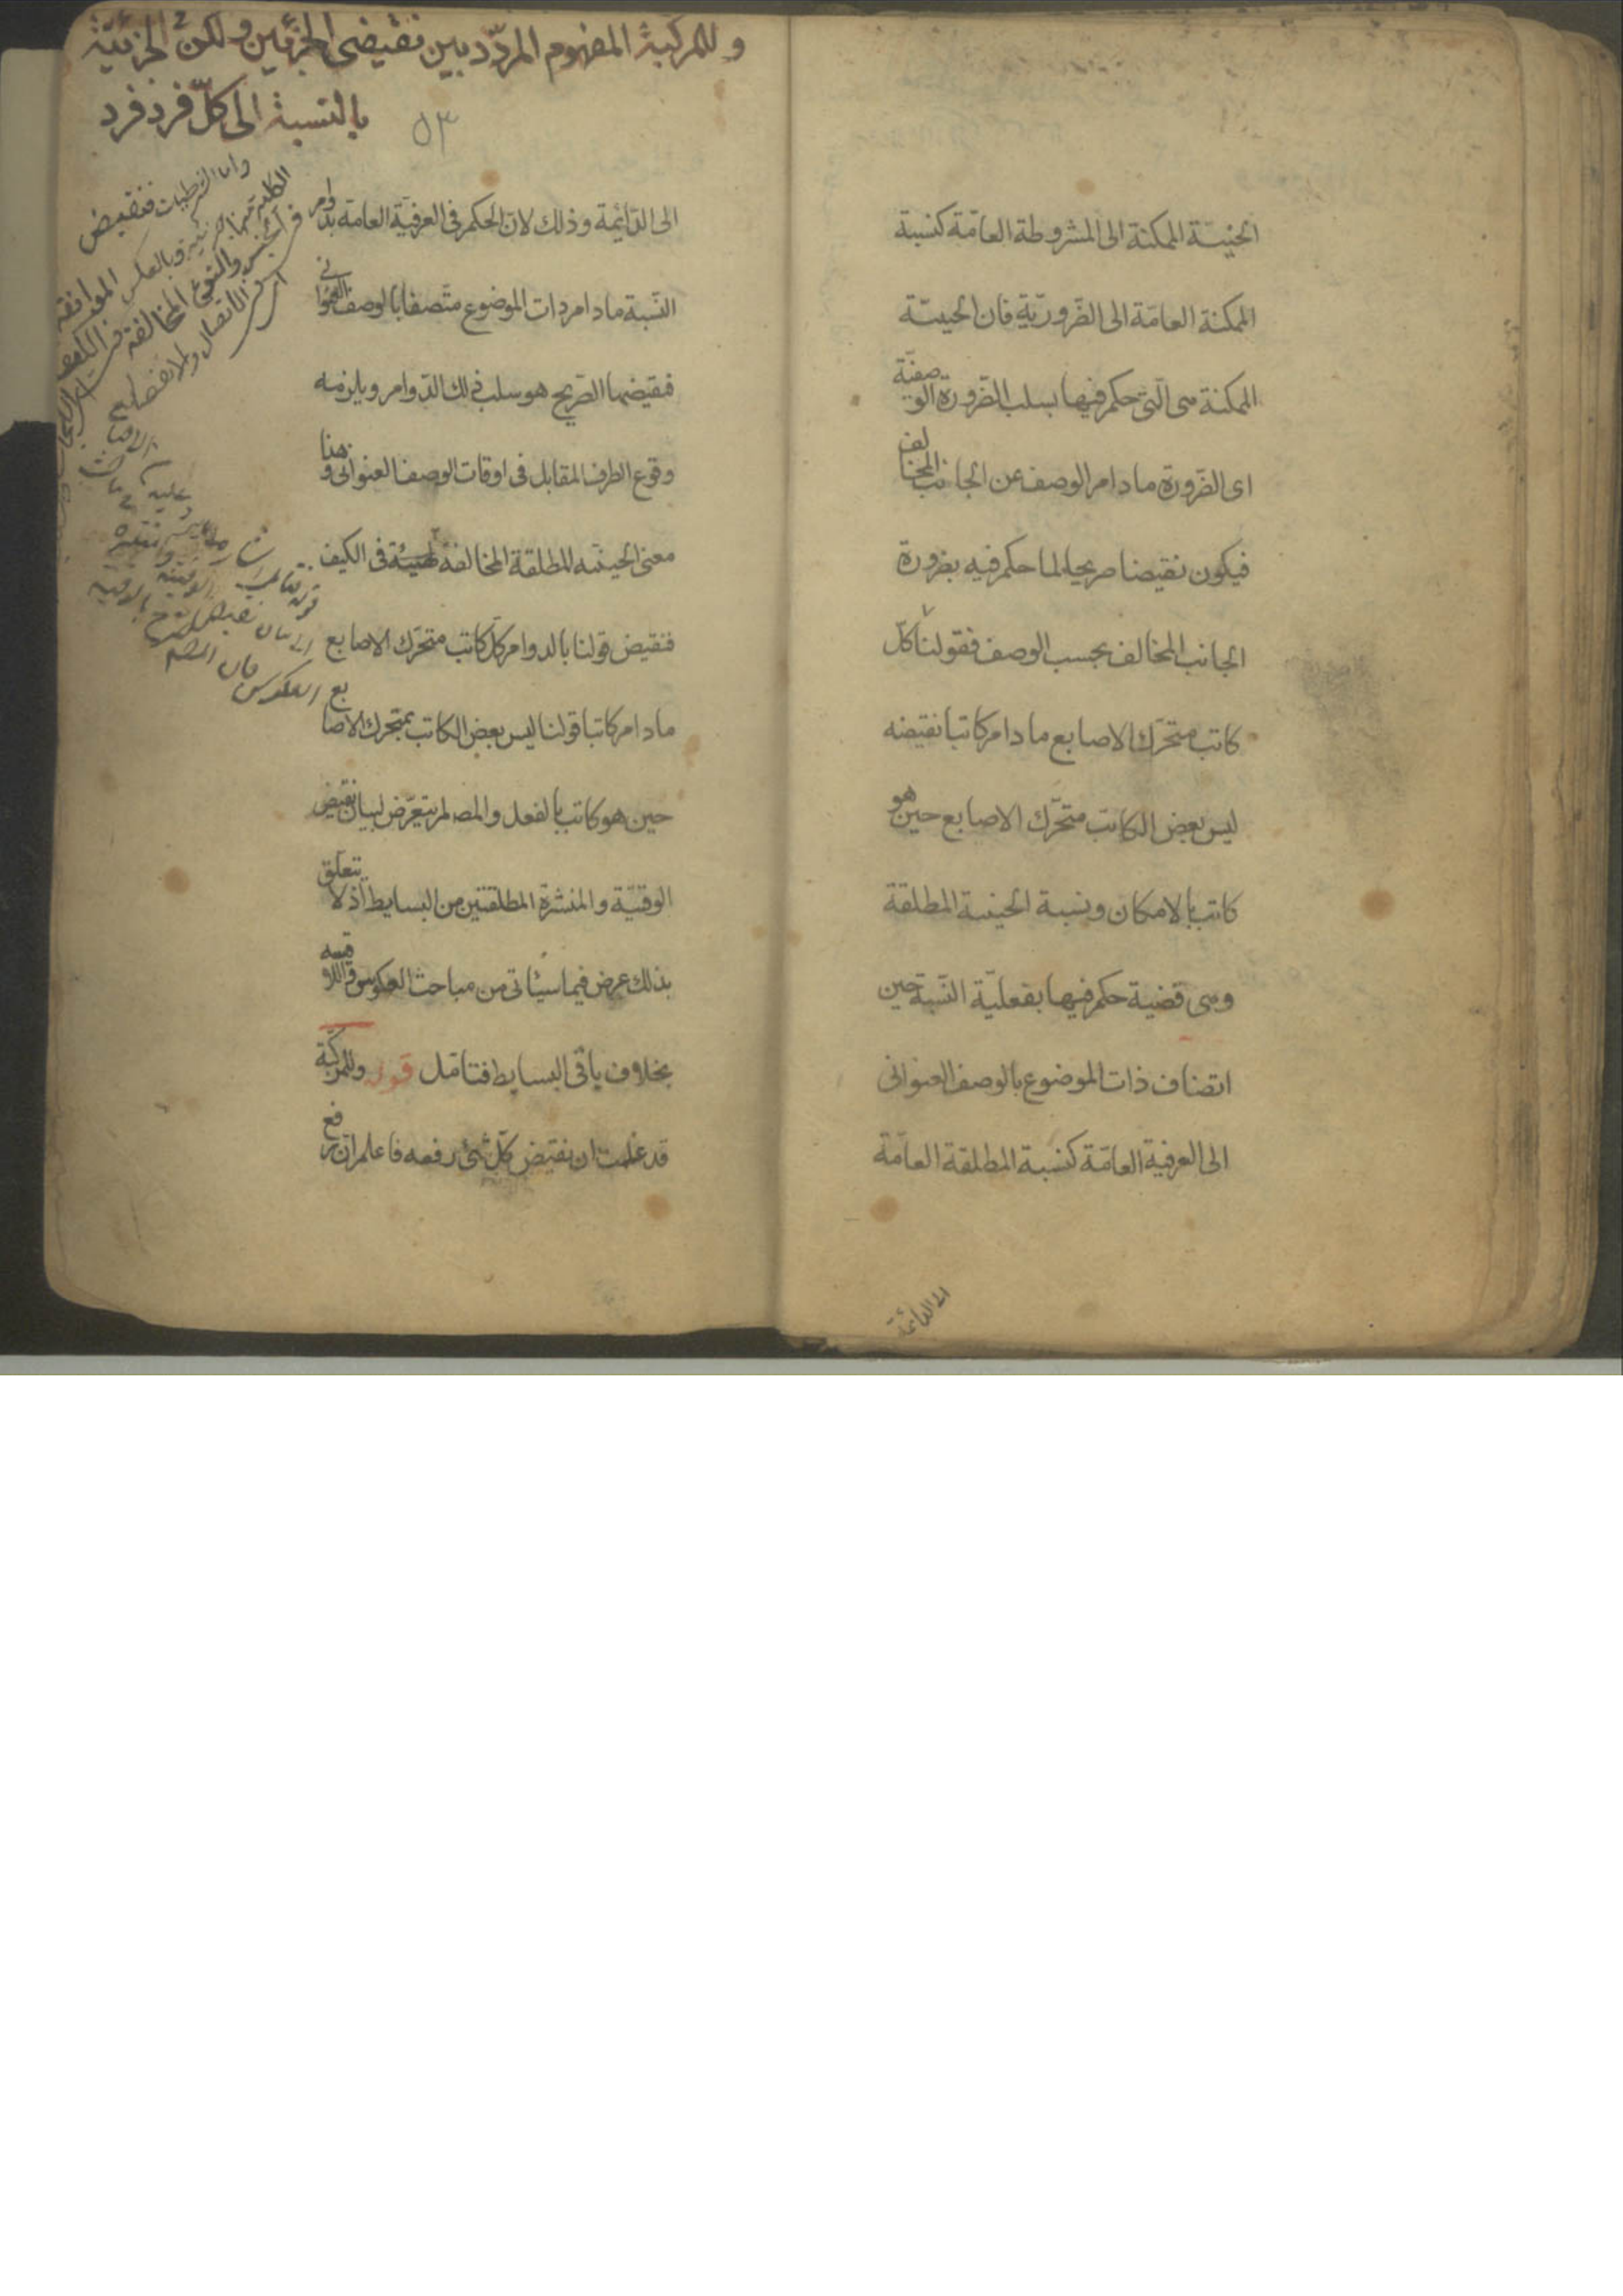 الحينيّة الممكنة الى المشروطة العامّة كنسبة
الممكنة العامّة الى الضّروريّة فان الحينيّة
الممكنة هى الّتى حكم فيها بسلب الضّرورة الوصفيّة
اى الضّرورة ما دام الوصف عن الجانب المخالف
فيكون نقيضا صريحا لما حكم فيه بضرورة
الجانب المخالف بحسب الوصف فقولنا كلّ
كاتب متحرّك الاصابع ما دام كاتبا نقيضه
ليس بعض الكاتب متحرّك الاصابع حين هو
كاتب بالامكان ونسبة الحينية المطلقة
وهى قضية حكم فيها بفعليّة النّسبة حين
اتصاف ذات الموضوع بالوصف العنوانى
الى العرفية العامّة كنسبة المطلقة العامّة
الى الدائمة
وللمركبة المفهوم المردّد بين نقيضى الجزئين ولكن الجزئيّة
بالنسبة الى كلّ فرد فرد
٥٣
الى الدّائمة وذلك لانّ الحكم فى العرفيّة العامة بدوام
النّسبة ما دام ذات الموضوع متّصفا بالوصف العنوانى
فنقيضها الصّريح هو سلب ذلك الدّوام ويلزمه
وقوع الطرف المقابل فى اوقات الوصف العنوانى وهذا
معنى الحينيّه المطلقة المخالفة فى الكيف
فنقيض قولنا بالدوام كلّ كاتب متحرّك الاصابع
ما دام كاتبا قولنا ليس بعض الكاتب بمتحرك الاصابع
حين هو كاتب بالفعل والمصـ لم يتعرّض لبيان نقيض
الوقتيّة والمنتشرة المطلقتين من البسايط اذ لا يتعلّق
بذلك غرض فيما سيأتى من مباحث العكوس والاقيسه
بخلاف باقى البسايط فتامّل قوله وللمركبّة
قد علمت ان نقيض كلّ شئ رفعه فاعلم انّ رفع
واما الشرطيات فنقيض
الكلية منها الجزئيه وبالعكس الموافقة
فى الجنس والنوع المخالفة فى الكيف